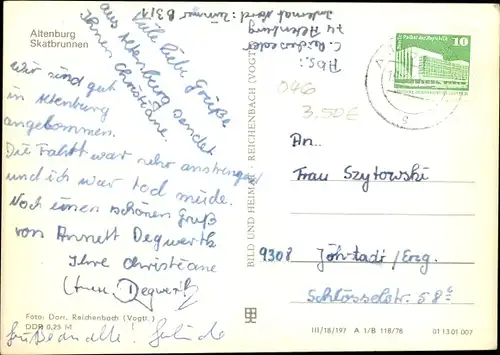 Altenburg
Skatbrunnen
Viele liebe Grüße
aus Altenburg sendet
Ihnen Christiane.
Wir sind gut
in Altenburg
angekommen.
Die Fahrt war sehr anstrengend
und ich war tod müde.
Noch einen schönen Gruß
von Annett Degwerth
Ihre Christiane
Degwerth
Foto: Darr, Reichenbach (Vogtl.)
DDR 0,25 M
Grüße an alle!
BILD UND HEIMAT REICHENBACH (VOGTL)
Abs.:
C.
74 Altenburg
Internat Nord: Zimmer B 3/1
10
046
3.50€
An.
Frau Szytowski
9308 Jöhstadt/Erzg.
Schlösselstr. 58c
III/18/197 A 1/B 118/78 01 13 01 007